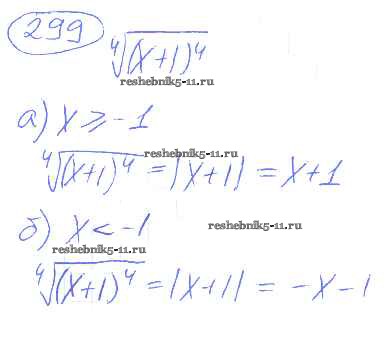 299
⁴√(x+1)⁴
reshebnik5-11.ru
а) x ≥ -1
reshebnik5-11.ru
⁴√(x+1)⁴ = |x+1| = x+1
б) x < -1
reshebnik5-11.ru
reshebnik5-11.ru
⁴√(x+1)⁴ = |x+1| = -x-1